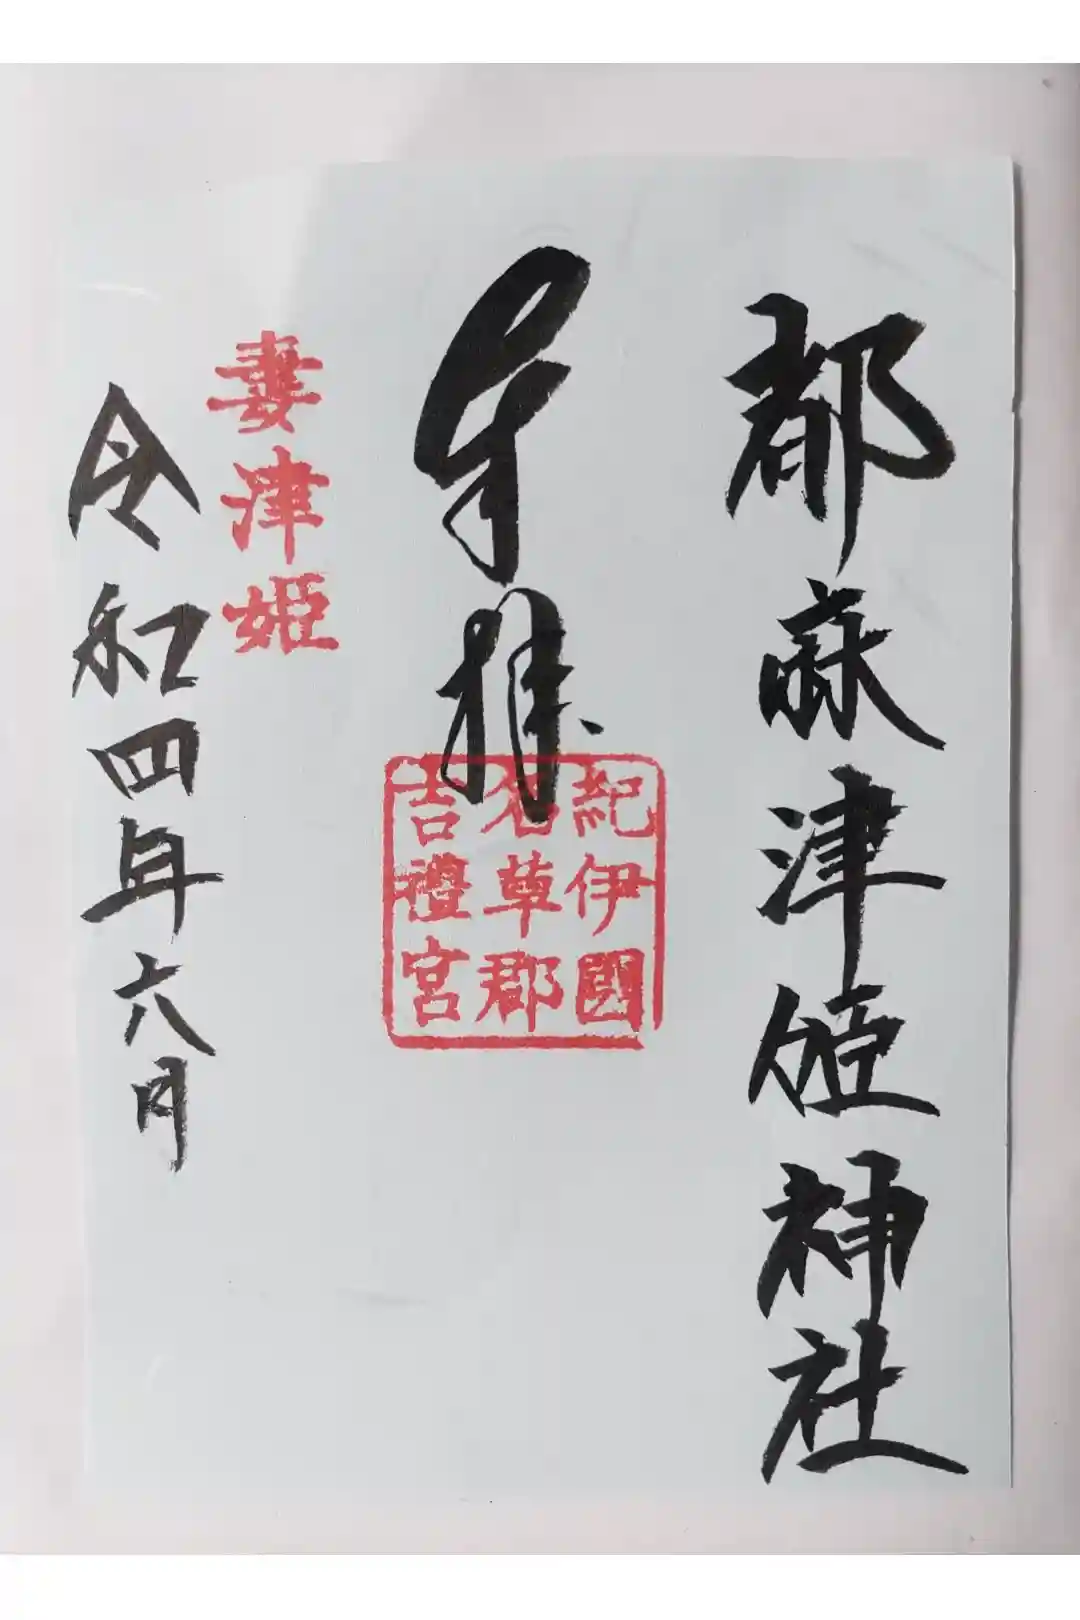 都麻津姫神社
奉拝
紀伊國
名草郡
吉禮宮
妻津姫
令和四年六月